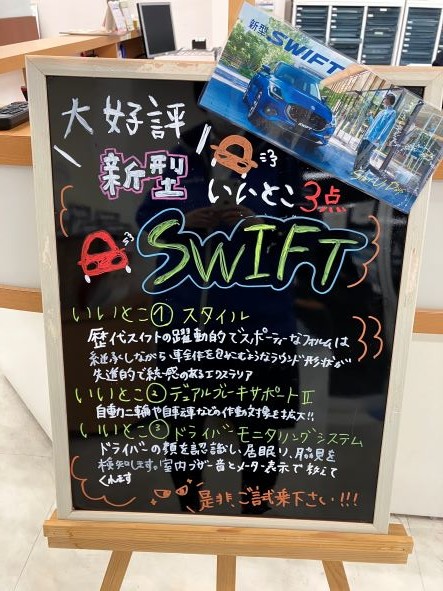 新型 SWIFT
大好評
新型
いいとこ3点
SWIFT
いいとこ① スタイル
歴代スイフトの躍動的でスポーティーなフォルムは
継承しながら、車全体を包みこむようなラウンド形状が
先進的で統一感のあるエクステリア
いいとこ② デュアルブレーキサポートⅡ
自動二輪や自転車などの作動対象を拡大!!
いいとこ③ ドライバーモニタリングシステム
ドライバーの顔を認識し、居眠り、脇見を
検知します。室内ブザー音とメーター表示で教えて
くれます
是非、ご試乗下さい!!!